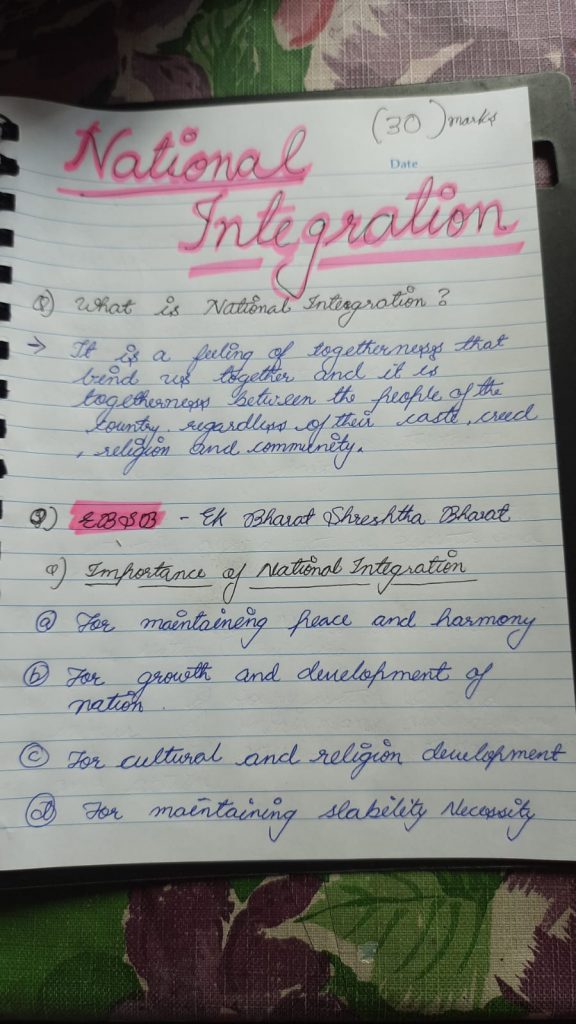 (30) marks
Date
National
Integration
Q) What is National Integration?
→ It is a feeling of togetherness that
bind us together and it is
togetherness between the people of the
country, regardless of their caste, creed
, religion and community.
Q) EBSB - Ek Bharat Shreshtha Bharat
Q) Importance of National Integration
(a) For maintaining peace and harmony
(b) For growth and development of
nation.
(c) For cultural and religion development
(d) For maintaining stability Necessity